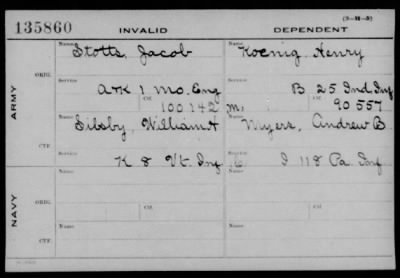 (3-M-5)
135860 INVALID DEPENDENT
Name Name
Stotts, Jacob Koenig Henry
ORIG.
Service Service
A & K 1 Mo. Eng B 25 Ind. Inf
Ctf. Ctf.
100142 M. 90557
ARMY
Name Name
Silsby, William H Myers, Andrew B
CTF.
Service Service
K 8 Vt. Inf C. I 118 Pa. Inf
Name Name
ORIG.
Ctf. Ctf.
NAVY
Name Name
CTF.